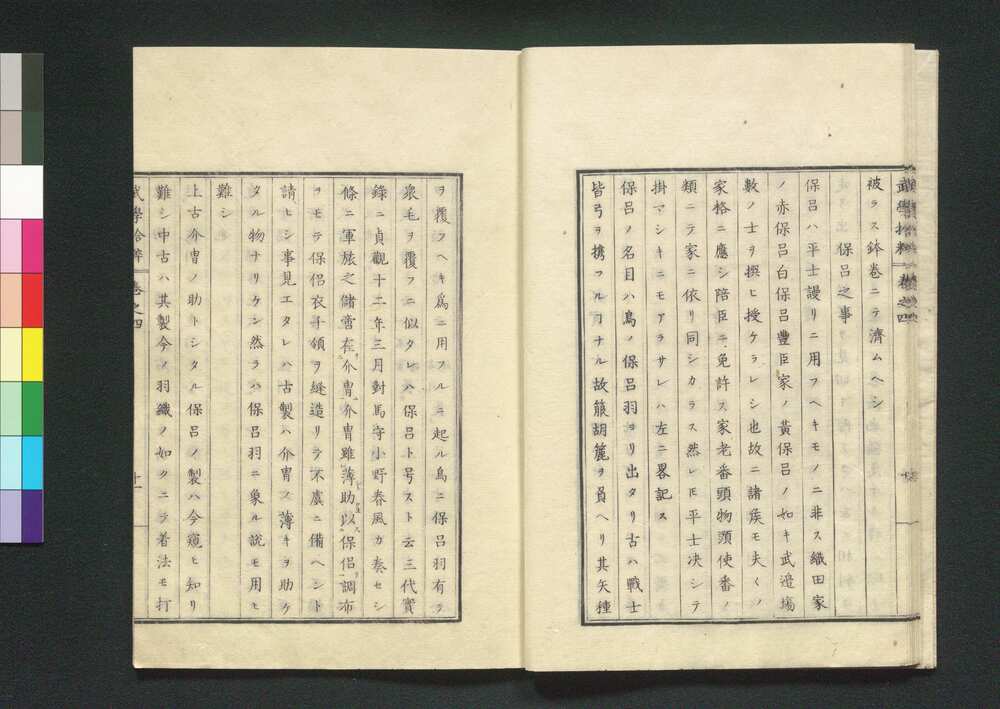 武學拾粹 卷之四
被ラス鉢卷ニテ濟ムヘシ
保呂之事
保呂ハ平士謾リニ用フヘキモノニ非ス織田家
ノ赤保呂白保呂豐臣家ノ黃保呂ノ如キ武邉塲
數ノ士ヲ撰ヒ授ケラレシ也故ニ諸矦モ夫〱ノ
家格ニ應シ陪臣ニ免許ス家老番頭物頭使番ノ
類ニテ家ニ依リ同シカラス然レ𪜈平士决シテ
掛マシキニモアラサレハ左ニ畧記ス
保呂ノ名目ハ鳥ノ保呂羽ヨリ出タリ古ハ戰士
皆弓ヲ携フルヿナル故箙胡簶ヲ負ヘリ其矢種
ヲ覆フヘキ爲ニ用フルニ起ル鳥ニ保呂羽有テ
衆毛ヲ覆フニ似タレハ保呂ト号スト云三代實
錄ニ貞觀十二年三月對馬守小野春風カ奏セシ
條ニ軍旅之儲啻在介冑介冑雖薄助以保侶調布
ヲモテ保侶衣千領ヲ縫造リテ不虞ニ備ヘント
請ヒシ事見エタレハ古製ハ介冑ノ薄キヲ助ケ
タル物ナリケン然ラハ保呂羽ニ象ル說モ用ヒ
難シ
上古介冑ノ助トシタル保呂ノ製ハ今窺ヒ知リ
難シ中古ハ其製今ノ羽織ノ如クニテ着法モ打
武學拾粹 卷之四 十一